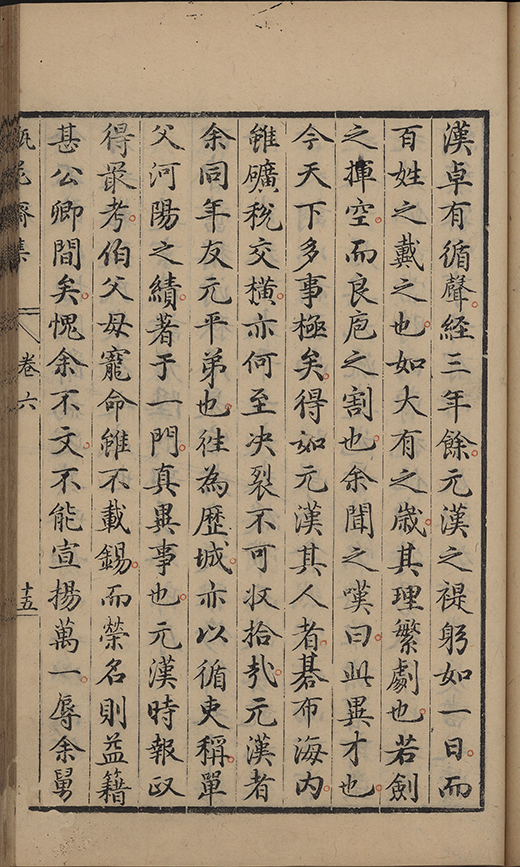 漢卓有循聲經三年餘元漢之禔躬如一日而
百姓之戴之也如大有之歲其理繁劇也若劍
之揮空而良庖之割也余聞之嘆曰此異才也
今天下多事極矣得如元漢其人者碁布海內
雖礦稅交橫亦何至决裂不可収拾㢤元漢者
余同年友元平弟也往為歷城亦以循吏稱單
父河陽之績著于一門真異事也元漢時報政
得㝡考伯父母寵命雖不載錫而榮名則益籍
甚公卿間矣愧余不文不能宣揚萬一辱余舅
齋集 卷六 十五